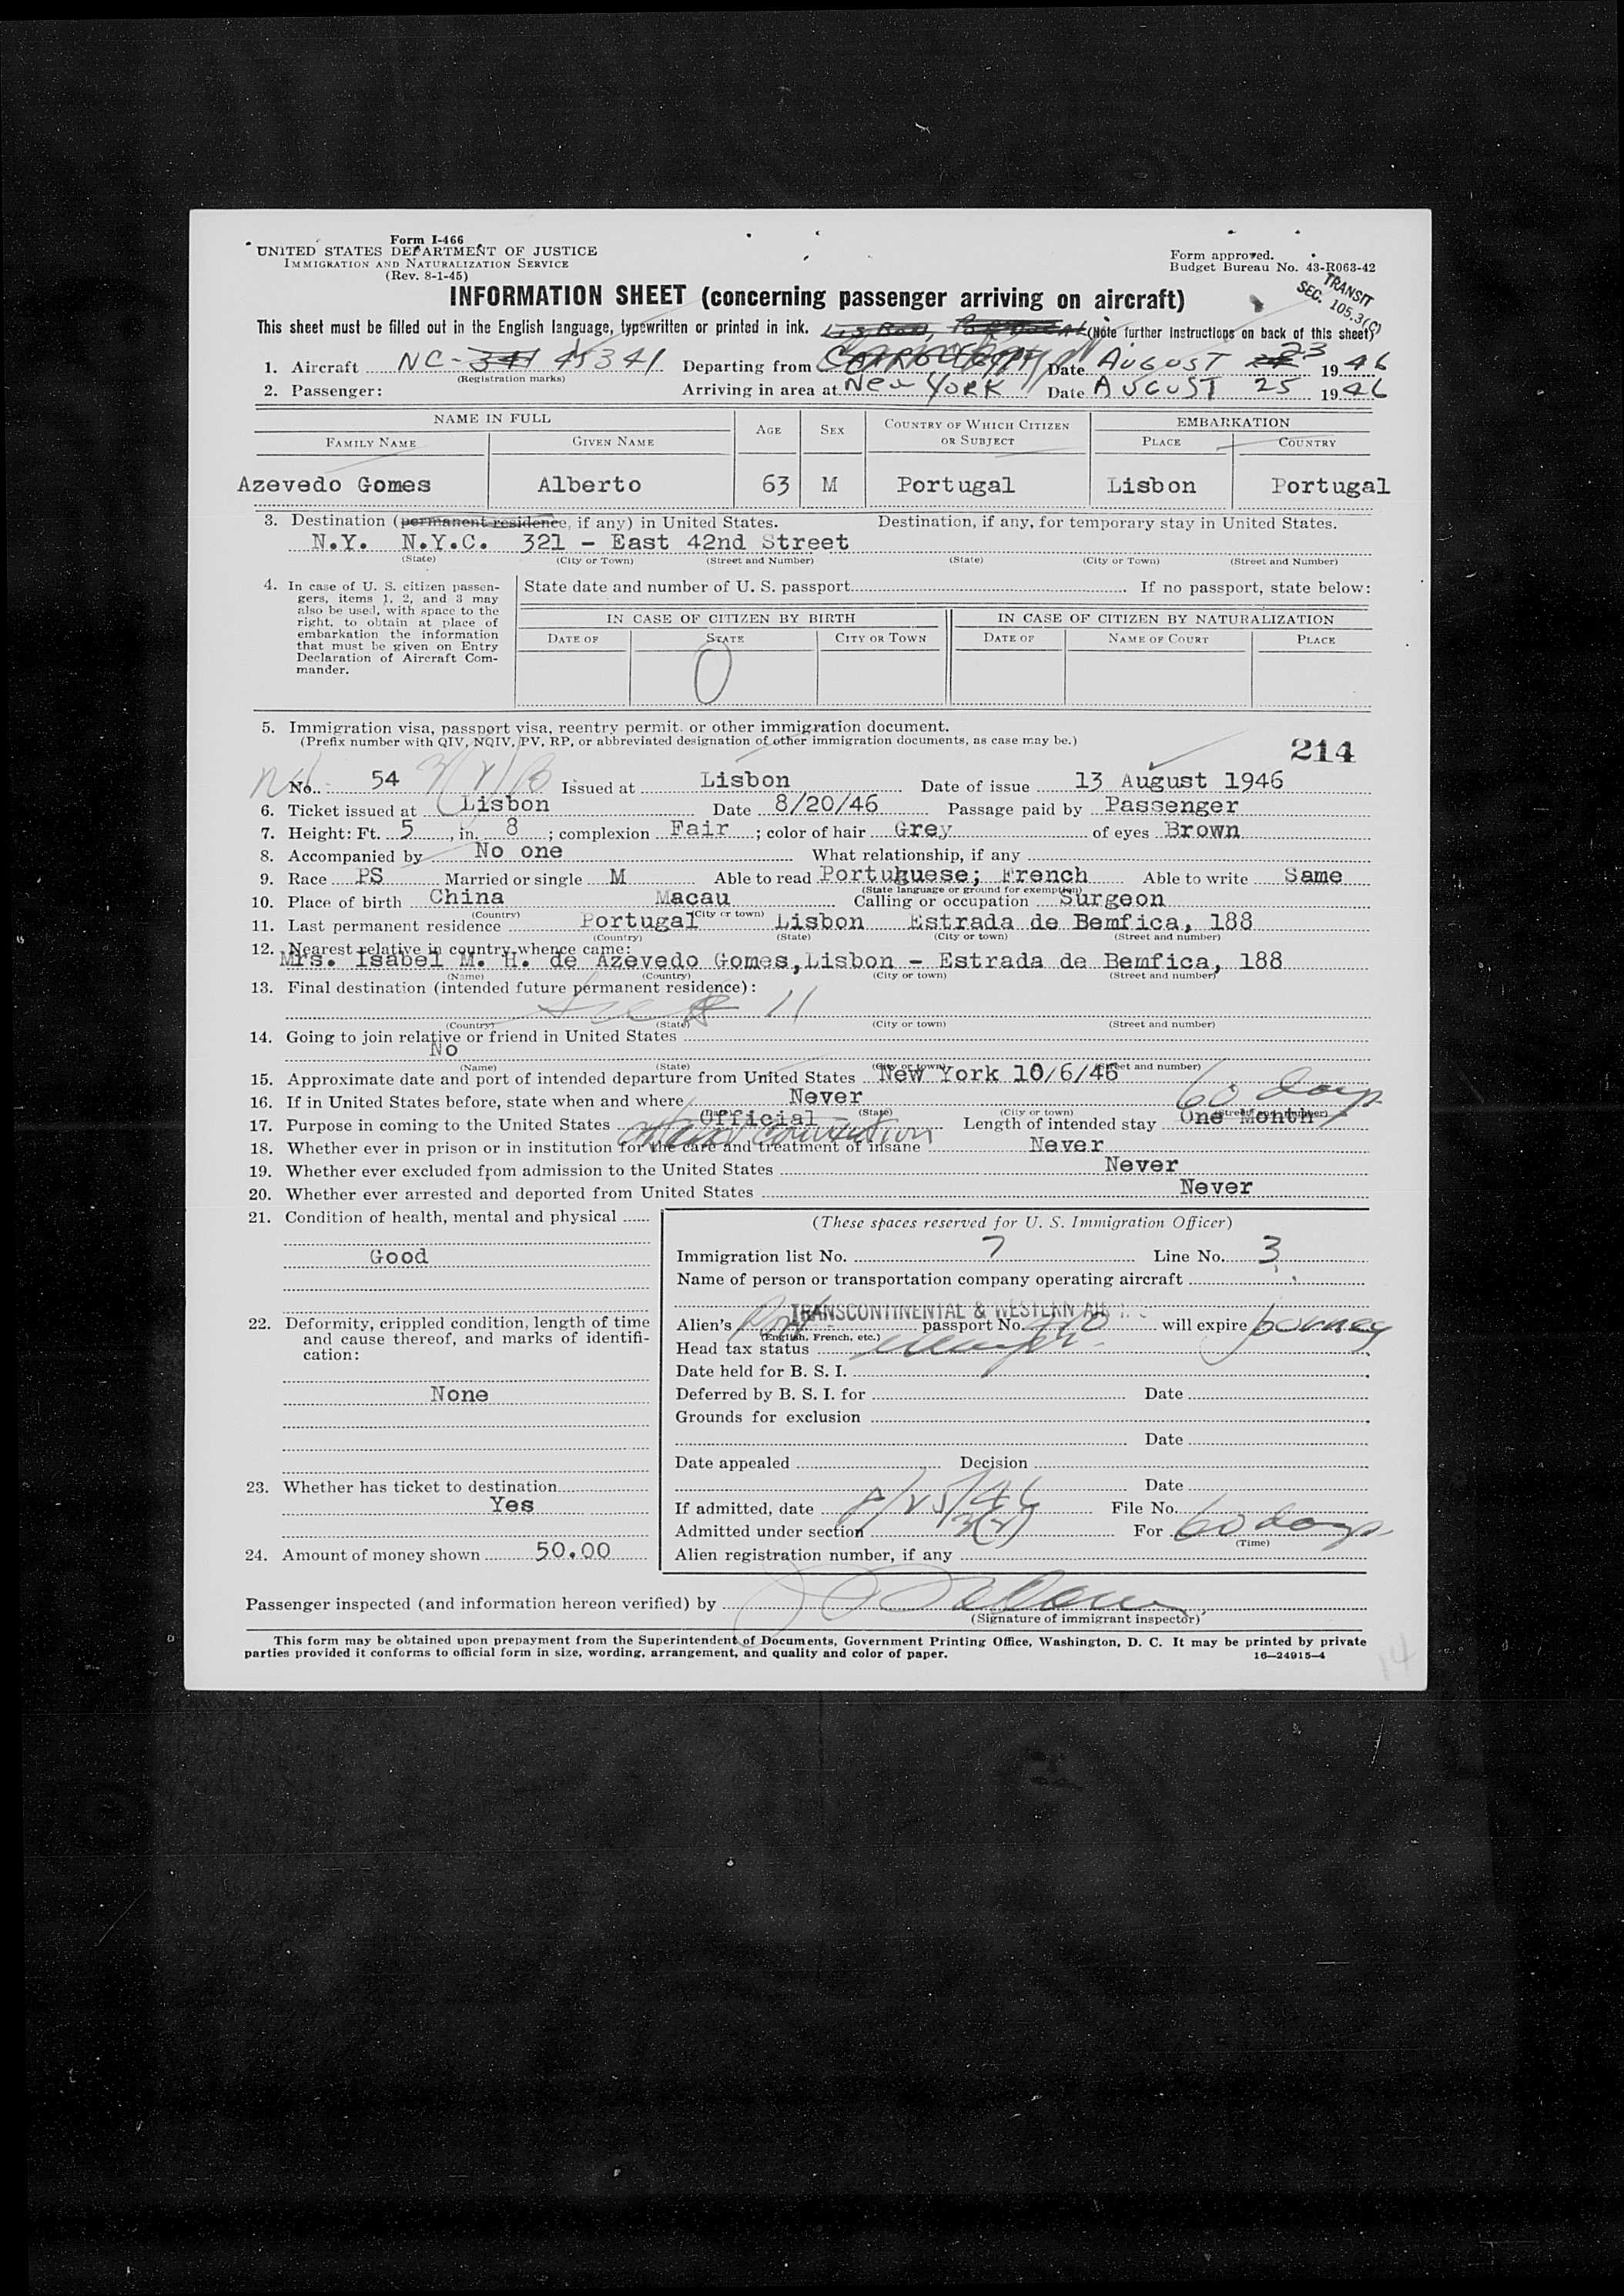 Form I-466
UNITED STATES DEPARTMENT OF JUSTICE
IMMIGRATION AND NATURALIZATION SERVICE
(Rev. 8-1-45)
Form approved.
Budget Bureau No. 43-R063-42
TRANSIT
SEC. 105.3(C)
INFORMATION SHEET (concerning passenger arriving on aircraft)
This sheet must be filled out in the English language, typewritten or printed in ink. (Note further instructions on back of this sheet)
1. Aircraft NC-341 45341 Departing from Date AUGUST 23 1946
(Registration marks)
2. Passenger: Arriving in area at New YORK Date AUGUST 25 1946
NAME IN FULL AGE SEX COUNTRY OF WHICH CITIZEN OR SUBJECT EMBARKATION
FAMILY NAME GIVEN NAME PLACE COUNTRY
Azevedo Gomes Alberto 63 M Portugal Lisbon Portugal
3. Destination (permanent residence, if any) in United States. Destination, if any, for temporary stay in United States.
N.Y. N.Y.C. 321 - East 42nd Street
(State) (City or Town) (Street and Number) (State) (City or Town) (Street and Number)
4. In case of U. S. citizen passen-
gers, items 1, 2, and 3 may
also be used, with space to the
right, to obtain at place of
embarkation the information
that must be given on Entry
Declaration of Aircraft Com-
mander.
State date and number of U. S. passport If no passport, state below:
IN CASE OF CITIZEN BY BIRTH IN CASE OF CITIZEN BY NATURALIZATION
DATE OF STATE CITY OR TOWN DATE OF NAME OF COURT PLACE
0
5. Immigration visa, passport visa, reentry permit, or other immigration document.
(Prefix number with QIV, NQIV, PV, RP, or abbreviated designation of other immigration documents, as case may be.)
214
No. 54 Issued at Lisbon Date of issue 13 August 1946
6. Ticket issued at Lisbon Date 8/20/46 Passage paid by Passenger
7. Height: Ft. 5, in. 8; complexion Fair; color of hair Grey of eyes Brown
8. Accompanied by No one What relationship, if any
9. Race PS Married or single M Able to read Portuguese; French Able to write Same
(State language or ground for exemption)
10. Place of birth China Macau Calling or occupation Surgeon
(Country) (City or town)
11. Last permanent residence Portugal Lisbon Estrada de Bemfica, 188
(Country) (State) (City or town) (Street and number)
12. Nearest relative in country whence came:
Mrs. Isabel M. H. de Azevedo Gomes, Lisbon - Estrada de Bemfica, 188
(Name) (Country) (City or town) (Street and number)
13. Final destination (intended future permanent residence):
11
(Country) (State) (City or town) (Street and number)
14. Going to join relative or friend in United States
No
(Name) (State) (City or town) (Street and number)
15. Approximate date and port of intended departure from United States New York 10/6/46
16. If in United States before, state when and where Never 60 days
(Date) (State) (City or town) (Street and number)
17. Purpose in coming to the United States Official Length of intended stay One Month
18. Whether ever in prison or in institution for the care and treatment of insane Never
19. Whether ever excluded from admission to the United States Never
20. Whether ever arrested and deported from United States Never
21. Condition of health, mental and physical
Good
22. Deformity, crippled condition, length of time
and cause thereof, and marks of identifi-
cation:
None
23. Whether has ticket to destination
Yes
24. Amount of money shown 50.00
(These spaces reserved for U. S. Immigration Officer)
Immigration list No. 7 Line No. 3
Name of person or transportation company operating aircraft
TRANSCONTINENTAL & WESTERN AIR
Alien's Port passport No. will expire
(English, French, etc.)
Head tax status
Date held for B. S. I.
Deferred by B. S. I. for Date
Grounds for exclusion
Date
Date appealed Decision
Date
If admitted, date 8/25/46 File No.
Admitted under section 3(2) For 60 days
(Time)
Alien registration number, if any
Passenger inspected (and information hereon verified) by
(Signature of immigrant inspector)
This form may be obtained upon prepayment from the Superintendent of Documents, Government Printing Office, Washington, D. C. It may be printed by private
parties provided it conforms to official form in size, wording, arrangement, and quality and color of paper. 16—24915-4
14